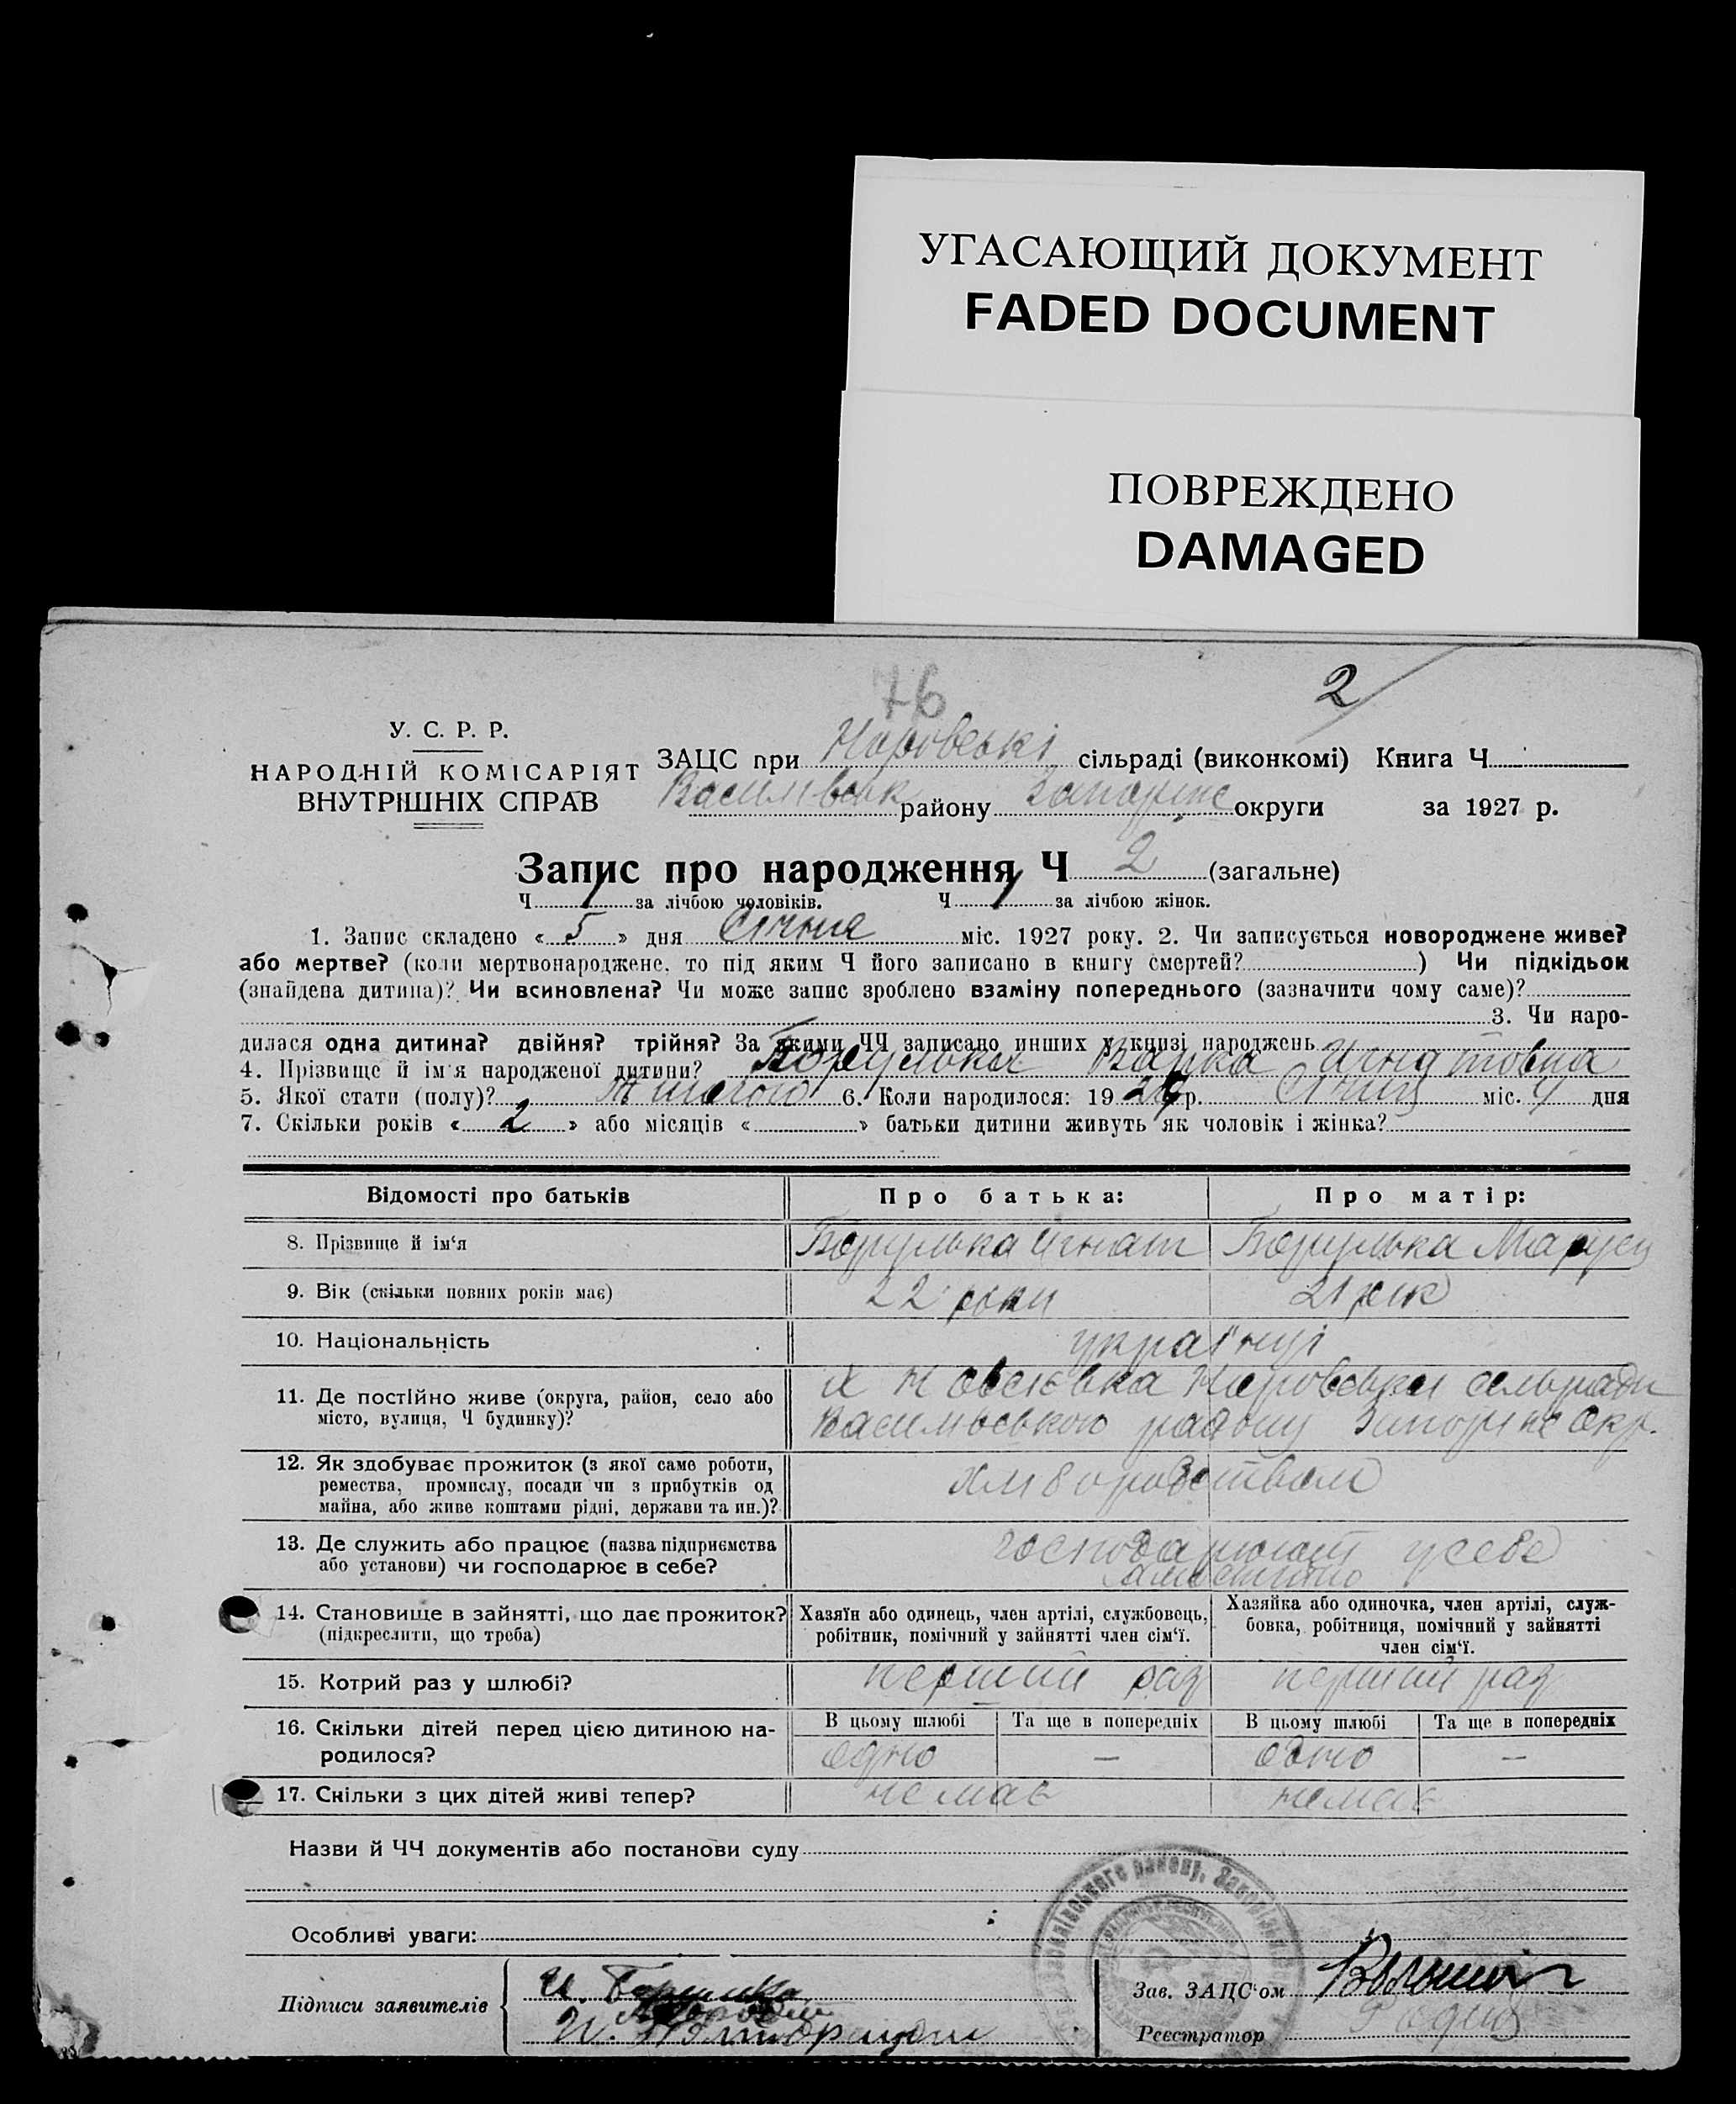 УГАСАЮЩИЙ ДОКУМЕНТ
FADED DOCUMENT
ПОВРЕЖДЕНО
DAMAGED
76
2
У. С. Р. Р.
НАРОДНІЙ КОМІСАРІЯТ
ВНУТРІШНІХ СПРАВ
ЗАЦС при сільраді (виконкомі) Книга Ч
району округи за 1927 р.
Запис про народження Ч 2 (загальне)
Ч 1 за лічбою чоловіків. Ч 1 за лічбою жінок.
1. Запис складено « 5 » дня Січня міс. 1927 року. 2. Чи записується новороджене живе?
або мертве? (коли мертвонароджене, то під яким Ч його записано в книгу смертей? ) Чи підкідьок
(знайдена дитина)? Чи всиновлена? Чи може запис зроблено взаміну попереднього (зазначити чому саме)?
3. Чи наро-
дилася одна дитина? двійня? трійня? За якими ЧЧ записано инших у книзі народжень
4. Прізвище й ім'я народженої дитини? Варка Игнатовна
5. Якої стати (полу)? 6. Коли народилося: 19 27 р. Січня міс. 4 дня
7. Скільки років « 2 » або місяців « » батьки дитини живуть як чоловік і жінка?
Відомості про батьків Про батька: Про матір:
8. Прізвище й ім'я Игнат Маруся
9. Вік (скільки повних років має) 22 роки 21 рік
10. Національність українці
11. Де постійно живе (округа, район, село або
місто, вулиця, Ч будинку)?
12. Як здобуває прожиток (з якої саме роботи,
ремества, промислу, посади чи з прибутків од
майна, або живе коштами рідні, держави та ин.)?
13. Де служить або працює (назва підприємства
або установи) чи господарює в себе? господарюють у себе
самостійно
14. Становище в зайнятті, що дає прожиток?
(підкреслити, що треба)
Хазяїн або одинець, член артілі, службовець,
робітник, помічний у зайнятті член сім'ї.
Хазяйка або одиночка, член артілі, служ-
бовка, робітниця, помічний у зайнятті
член сім'ї.
15. Котрий раз у шлюбі? перший раз перший раз
16. Скільки дітей перед цією дитиною на-
родилося?
В цьому шлюбі Та ще в попередніх В цьому шлюбі Та ще в попередніх
одно — одно —
17. Скільки з цих дітей живі тепер? немає немає
Назви й ЧЧ документів або постанови суду
Особливі уваги:
Підписи заявителів
Зав. ЗАЦС'ом
Реєстратор